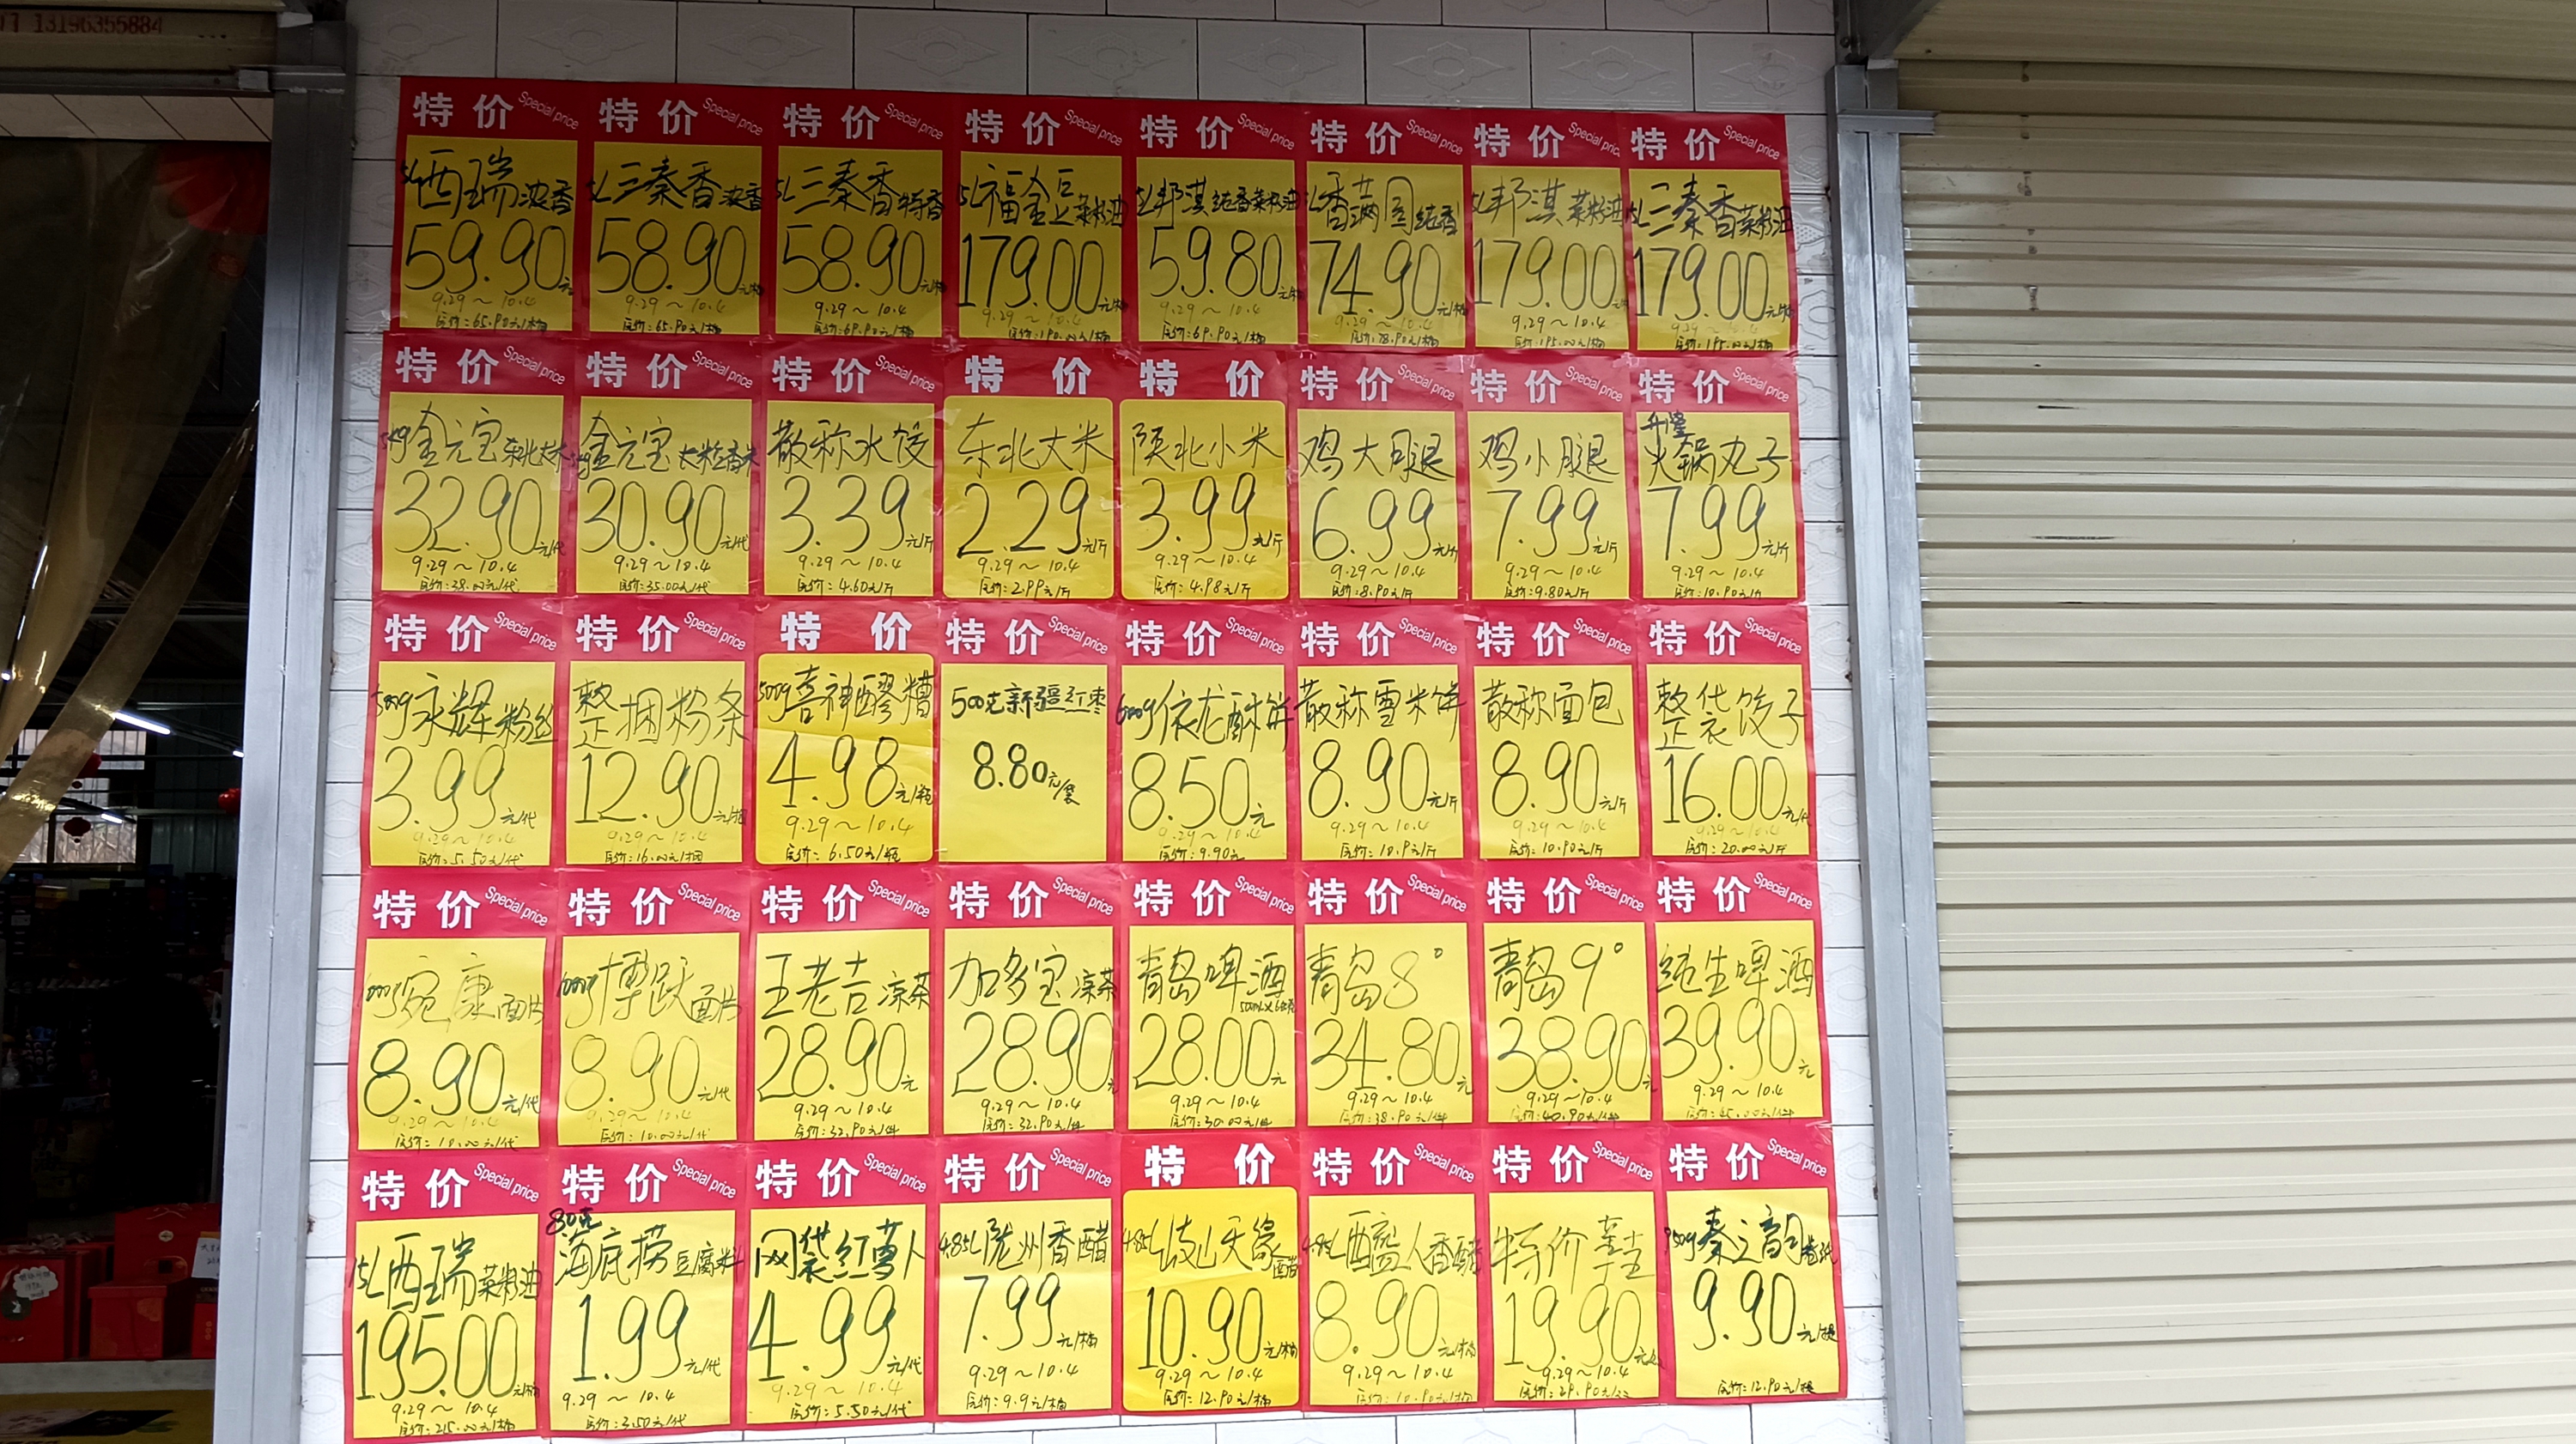 门 13196355884
特价 Special price
5L西瑞浓香
59.90元
9.29～10.4
原价:65.90元/桶
特价 Special price
5L三秦香浓香
58.90元/桶
9.29～10.4
原价:65.90元/桶
特价 Special price
5L三秦香特香
58.90元/桶
9.29～10.4
原价:69.90元/桶
特价 Special price
福金豆菜籽油
179.00元/桶
9.29～10.4
原价:190.00元/桶
特价 Special price
5L邦淇纯香菜籽油
59.80元/桶
9.29～10.4
原价:69.90元/桶
特价 Special price
5L香满园纯香
74.90元/桶
9.29～10.4
原价:78.90元/桶
特价 Special price
邦淇菜籽油
179.00元
9.29～10.4
原价:195.00元/桶
特价 Special price
三秦香菜籽油
179.00元/桶
9.29～10.4
原价:195.00元/桶
特价 Special price
金元宝东北大米
32.90元/代
9.29～10.4
原价:38.00元/代
特价 Special price
金元宝长粒香米
30.90元/代
9.29～10.4
原价:35.00元/代
特价 Special price
散称水饺
3.39元/斤
9.29～10.4
原价:4.60元/斤
特价
东北大米
2.29元/斤
9.29～10.4
原价:2.99元/斤
特价
陕北小米
3.99元/斤
9.29～10.4
原价:4.98元/斤
特价 Special price
鸡大腿
6.99元/斤
9.29～10.4
原价:8.90元/斤
特价 Special price
鸡小腿
7.99元/斤
9.29～10.4
原价:9.80元/斤
特价 Special price
升隆
火锅丸子
7.99元/斤
9.29～10.4
原价:10.90元/斤
特价 Special price
500g永辉粉丝
3.99元/代
9.29～10.4
原价:5.50元/代
特价 Special price
整捆粉条
12.90元/捆
9.29～10.4
原价:16.00元/捆
特价
500g喜神醪糟
4.98元/瓶
9.29～10.4
原价:6.50元/瓶
特价 Special price
500克新疆红枣
8.80元/袋
特价 Special price
600g依龙酥饼
8.50元
9.29～10.4
原价:9.90元
特价 Special price
散称雪米饼
8.90元/斤
9.29～10.4
原价:10.9元/斤
特价 Special price
散称面包
8.90元/斤
9.29～10.4
原价:10.90元/斤
特价 Special price
整袋饺子
16.00元/代
9.29～10.4
原价:20.00元/斤
特价 Special price
1000g宛康面片
8.90元/代
9.29～10.4
原价:10.00元/代
特价 Special price
1000g博跃面片
8.90元/代
9.29～10.4
原价:10.00元/代
特价 Special price
王老吉凉茶
28.90元
9.29～10.4
原价:32.90元/件
特价 Special price
加多宝凉茶
28.90元
9.29～10.4
原价:32.90元/件
特价 Special price
青岛啤酒
28.00元
9.29～10.4
原价:30.00元/件
特价 Special price
青岛8°
34.80元
9.29～10.4
原价:38.90元/件
特价 Special price
青岛9°
38.90元
9.29～10.4
原价:40.90元/件
特价 Special price
纯生啤酒
39.90元
9.29～10.4
原价:45.00元/件
特价 Special price
15L西瑞菜籽油
195.00元/桶
9.29～10.4
原价:215.00元/桶
特价 Special price
80克
海底捞豆腐料
1.99元/代
9.29～10.4
原价:3.50元/代
特价 Special price
网袋红萝卜
4.99元/代
9.29～10.4
原价:5.50元/代
特价 Special price
4.85L陇州香醋
7.99元/桶
9.29～10.4
原价:9.9元/桶
特价
4.85L岐山天缘香醋
10.90元/桶
9.29～10.4
原价:12.90元/桶
特价 Special price
4.85L醯人香醋
8.90元/桶
9.29～10.4
原价:10.90元/桶
特价 Special price
特价
19.90元
9.29～10.4
原价:29.90元
特价 Special price
950g秦之韵卷纸
9.90元/提
原价:12.90元/提